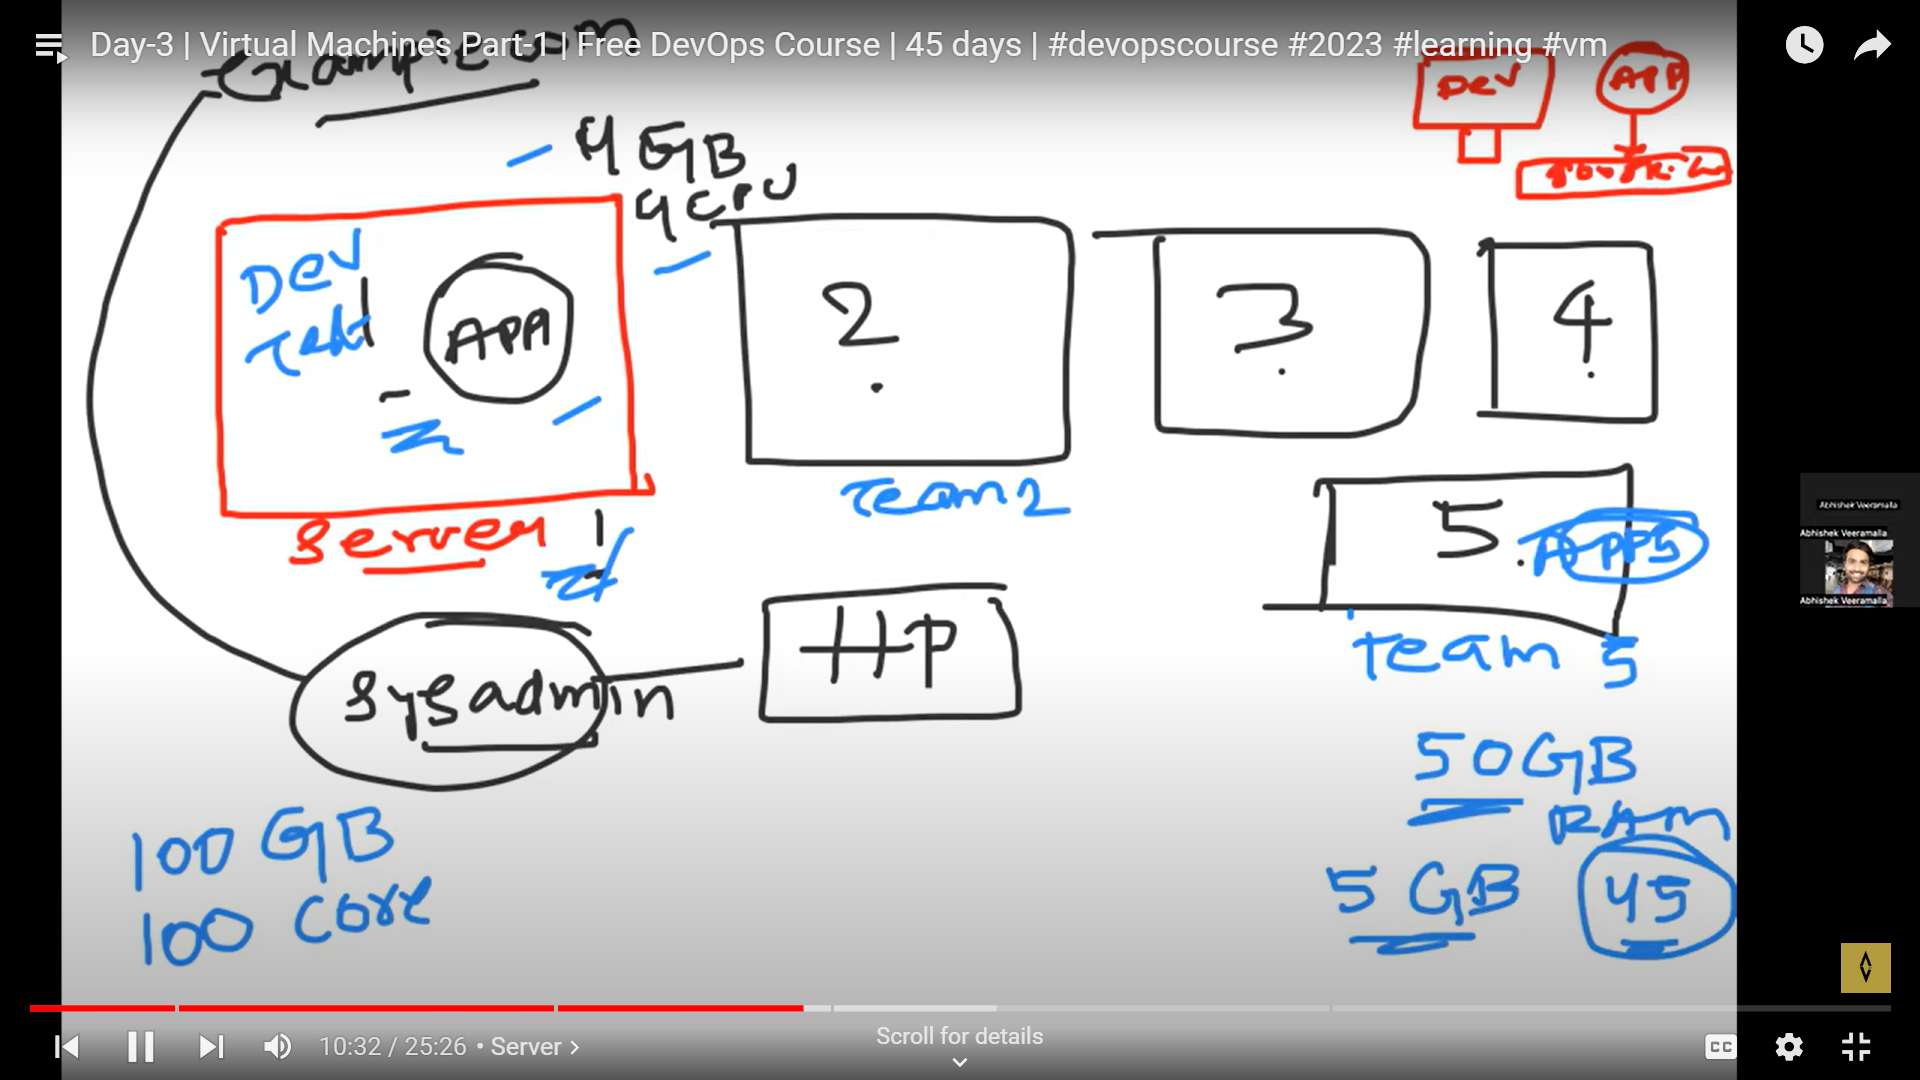 Day-3 | Virtual Machines Part-1 | Free DevOps Course | 45 days | #devopscourse #2023 #learning #vm
example.com
DEV
APP
4 GB
4 CPU
DEV
Test
APP
2
3
4
Server 1
Team 2
5
APP5
Team 5
sysadmin
HP
50GB
RAM
100 GB
5 GB
45
100 Core
Abhishek Veeramalla
Abhishek Veeramalla
Abhishek Veeramalla
10:32 / 25:26 • Server >
Scroll for details
CC